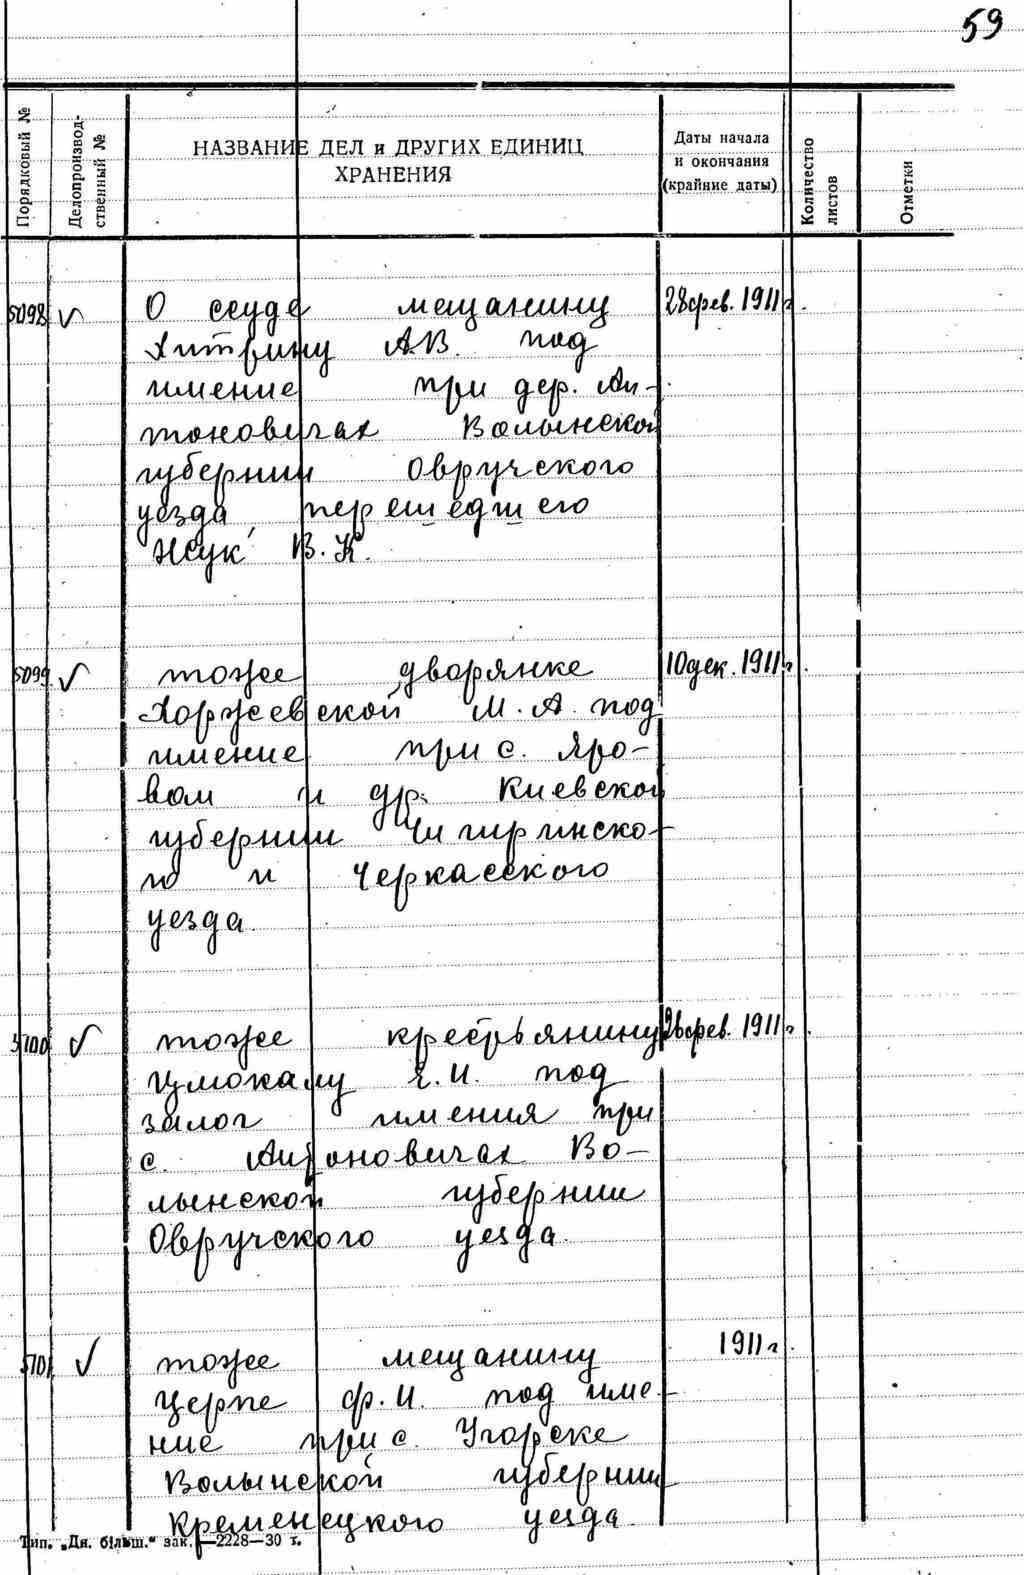 59
Порядковый №
Делопроизвод-
ственный №
НАЗВАНИЕ ДЕЛ и ДРУГИХ ЕДИНИЦ
ХРАНЕНИЯ
Даты начала
и окончания
(крайние даты)
Количество
листов
Отметки
5098 ✓ О ссуде мещанину 28 фев. 1911 г.
Хитрину А.В. под
имение при дер. Ан-
тоновичах Волынской
губернии Овручского
уезда, перешедшего
Жук В.К.
5099 ✓ тоже дворянке 10 дек. 1911 г.
Хоржевской М.А. под
имение при с. Яро-
вом и др. Киевской
губернии Чигиринско-
го и Черкасского
уезда.
5100 ✓ тоже крестьянину 26 фев. 1911 г.
под
залог имения при
с. Антоновичах Во-
лынской губернии
Овручского уезда.
5101 ✓ тоже мещанину 1911 г.
Церпе Ф.И. под име-
ние при с. Угорске
Волынской губернии
Кременецкого уезда.
Тип. „Дн. більш.“ зак. —2228—30 т.